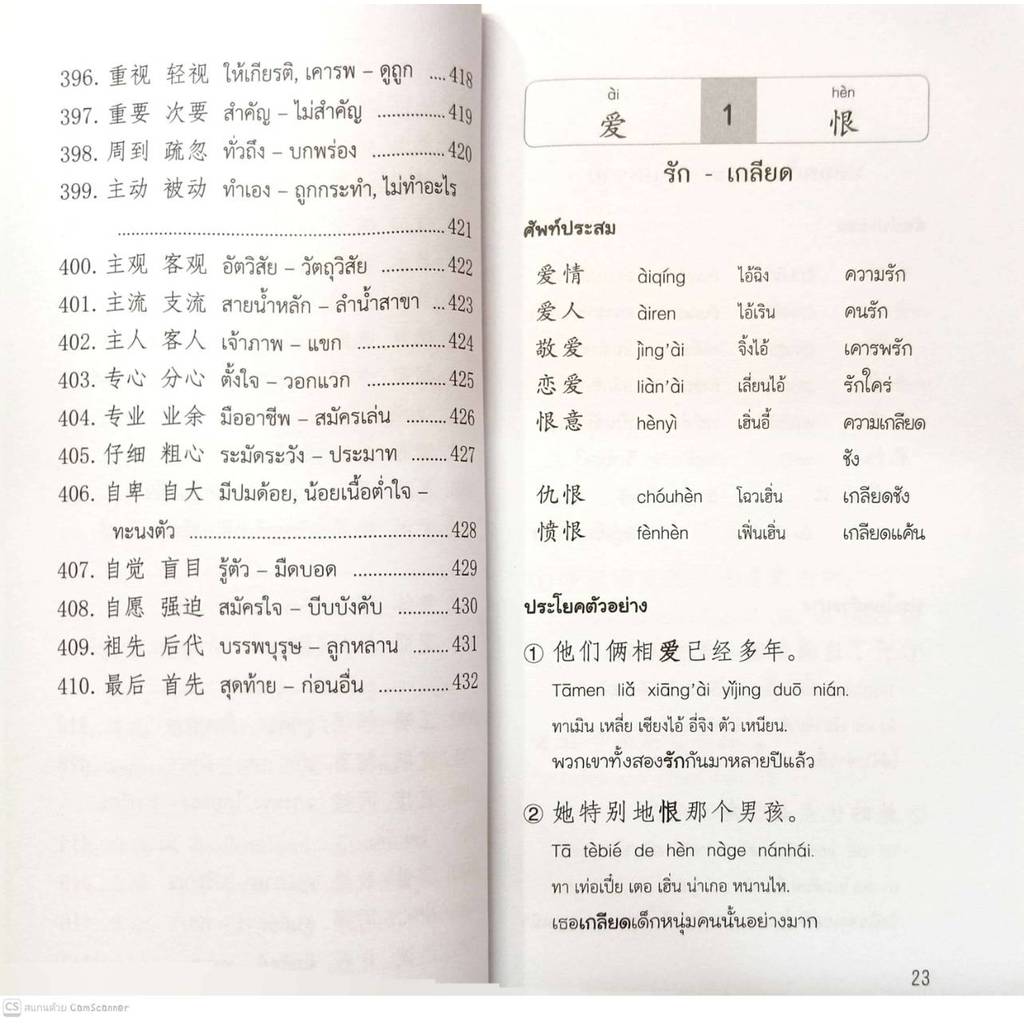 396. 重视 轻视 ให้เกียรติ, เคารพ – ดูถูก ....418
397. 重要 次要 สำคัญ – ไม่สำคัญ ...............419
398. 周到 疏忽 ทั่วถึง – บกพร่อง ................420
399. 主动 被动 ทำเอง – ถูกกระทำ, ไม่ทำอะไร
.......................................................................421
400. 主观 客观 อัตวิสัย – วัตถุวิสัย ..............422
401. 主流 支流 สายน้ำหลัก – ลำน้ำสาขา ...423
402. 主人 客人 เจ้าภาพ – แขก ...................424
403. 专心 分心 ตั้งใจ – วอกแวก .................425
404. 专业 业余 มืออาชีพ – สมัครเล่น .........426
405. 仔细 粗心 ระมัดระวัง – ประมาท ........427
406. 自卑 自大 มีปมด้อย, น้อยเนื้อต่ำใจ –
ทะนงตัว .......................................................428
407. 自觉 盲目 รู้ตัว – มืดบอด .....................429
408. 自愿 强迫 สมัครใจ – บีบบังคับ ...........430
409. 祖先 后代 บรรพบุรุษ – ลูกหลาน ........431
410. 最后 首先 สุดท้าย – ก่อนอื่น ...............432
ài hèn
爱 1 恨
รัก - เกลียด
ศัพท์ประสม
爱情 àiqíng ไอ้ฉิง ความรัก
爱人 àiren ไอ้เริน คนรัก
敬爱 jìng'ài จิ้งไอ้ เคารพรัก
恋爱 liàn'ài เลี่ยนไอ้ รักใคร่
恨意 hènyì เฮิ่นอี้ ความเกลียด
ชัง
仇恨 chóuhèn โฉวเฮิ่น เกลียดชัง
愤恨 fènhèn เฟิ่นเฮิ่น เกลียดแค้น
ประโยคตัวอย่าง
① 他们俩相爱已经多年。
Tāmen liǎ xiāng'ài yǐjing duō nián.
ทาเมิน เหลี่ย เซียงไอ้ อี่จิง ตัว เหนียน.
พวกเขาทั้งสองรักกันมาหลายปีแล้ว
② 她特别地恨那个男孩。
Tā tèbié de hèn nàge nánhái.
ทา เท่อเปี๋ย เตอ เฮิ่น น่าเกอ หนานไห.
เธอเกลียดเด็กหนุ่มคนนั้นอย่างมาก
23
CS สแกนด้วย CamScanner